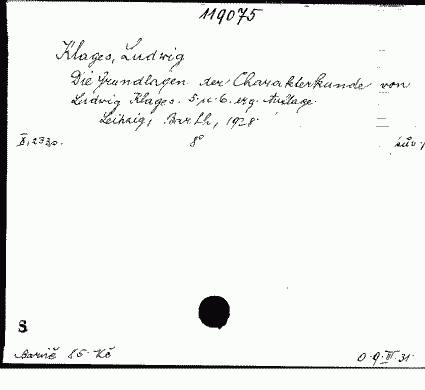 119075
Klages, Ludwig
Die Grundlagen der Charakterkunde von
Ludwig Klages. 5. u. 6. erg. Auflage.
Leipzig, Barth, 1928.
X, 233 s. 8°
S
Barvič 85 Kč 0.9.III.31